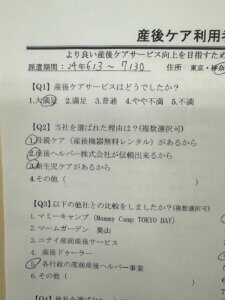 産後ケア利用者
より良い産後ケアサービス向上を目指すため
派遣期間: 24年6月3~7月30 住所 東京・神奈
【Q1】産後ケアサービスはどうでしたか?
1.大満足 2.満足 3.普通 4.やや不満 5.不満
【Q2】当社を選ばれた理由は?(複数選択可)
1.母親ケア(産後機器無料レンタル)があるから
2.産後ヘルパー株式会社が信頼出来るから
3.新生児ケアがあるから
4.その他(
【Q3】以下の他社との比較をしましたか?(複数選択可)
1.マミーキャンプ(Mommy Camp TOKYO BAY)
2.マームガーデン 葉山
3.ニチイ産前産後サービス
4.産後ドゥーラー
5.各行政の産前産後ヘルパー事業
6.その他(